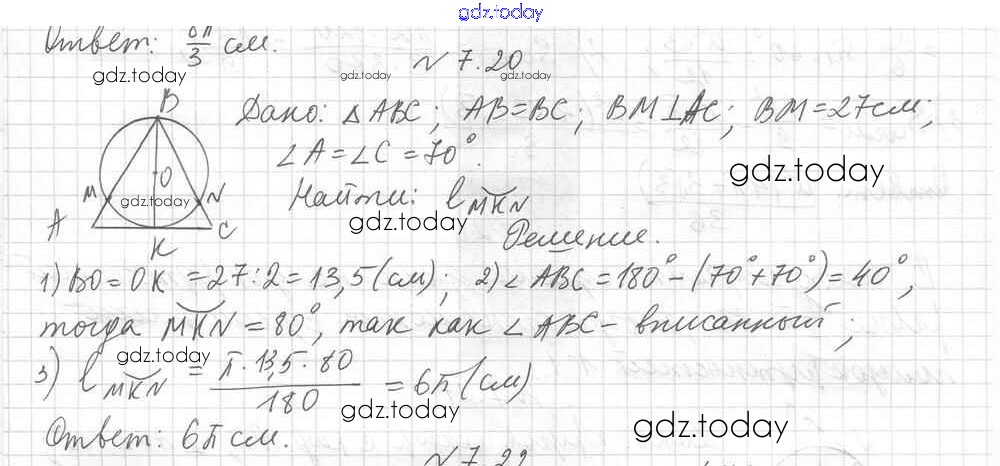 gdz.today
Ответ: 8π/3 см.
№ 7.20
gdz.today
gdz.today
gdz.today
B
Дано: △ABC; AB=BC; BM⊥AC; BM=27см;
∠A=∠C=70°.
gdz.today
O
M
N
gdz.today
Найти: l MKN
gdz.today
A
C
K
Решение.
1) BO=OK=27:2=13,5(см); 2) ∠ABC=180°-(70°+70°)=40°,
тогда MKN=80°, так как ∠ABC- вписанный;
gdz.today
3) l MKN = π·13,5·80/180 = 6π(см)
gdz.today
gdz.today
Ответ: 6π см.
№ 7.22